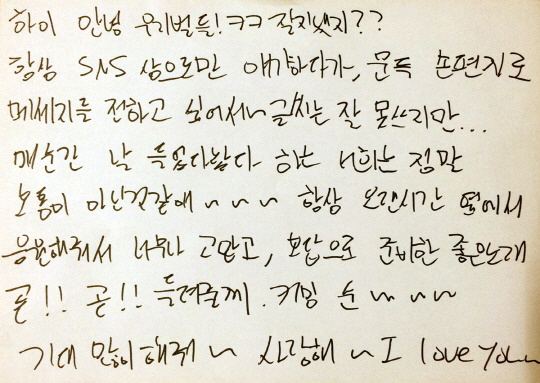 하이 안녕 우리별들!ㅋㅋ 잘지냈지??
항상 SNS 상으로만 얘기하다가, 문득 손편지로
메세지를 전하고 싶어서~ 글씨는 잘 못쓰지만...
매순간 날 들었다놨다 하는 너희는 정말
보통이 아닌것같애 ~ ~ ~ 항상 오랜시간 옆에서
응원해줘서 너무나 고맙고, 보답으로 준비한 좋은노래
곧!! 곧!! 들려줄께. 커밍 순 ~ ~ ~
기대 많이해줘 ~ 사랑해 ~ I love you~